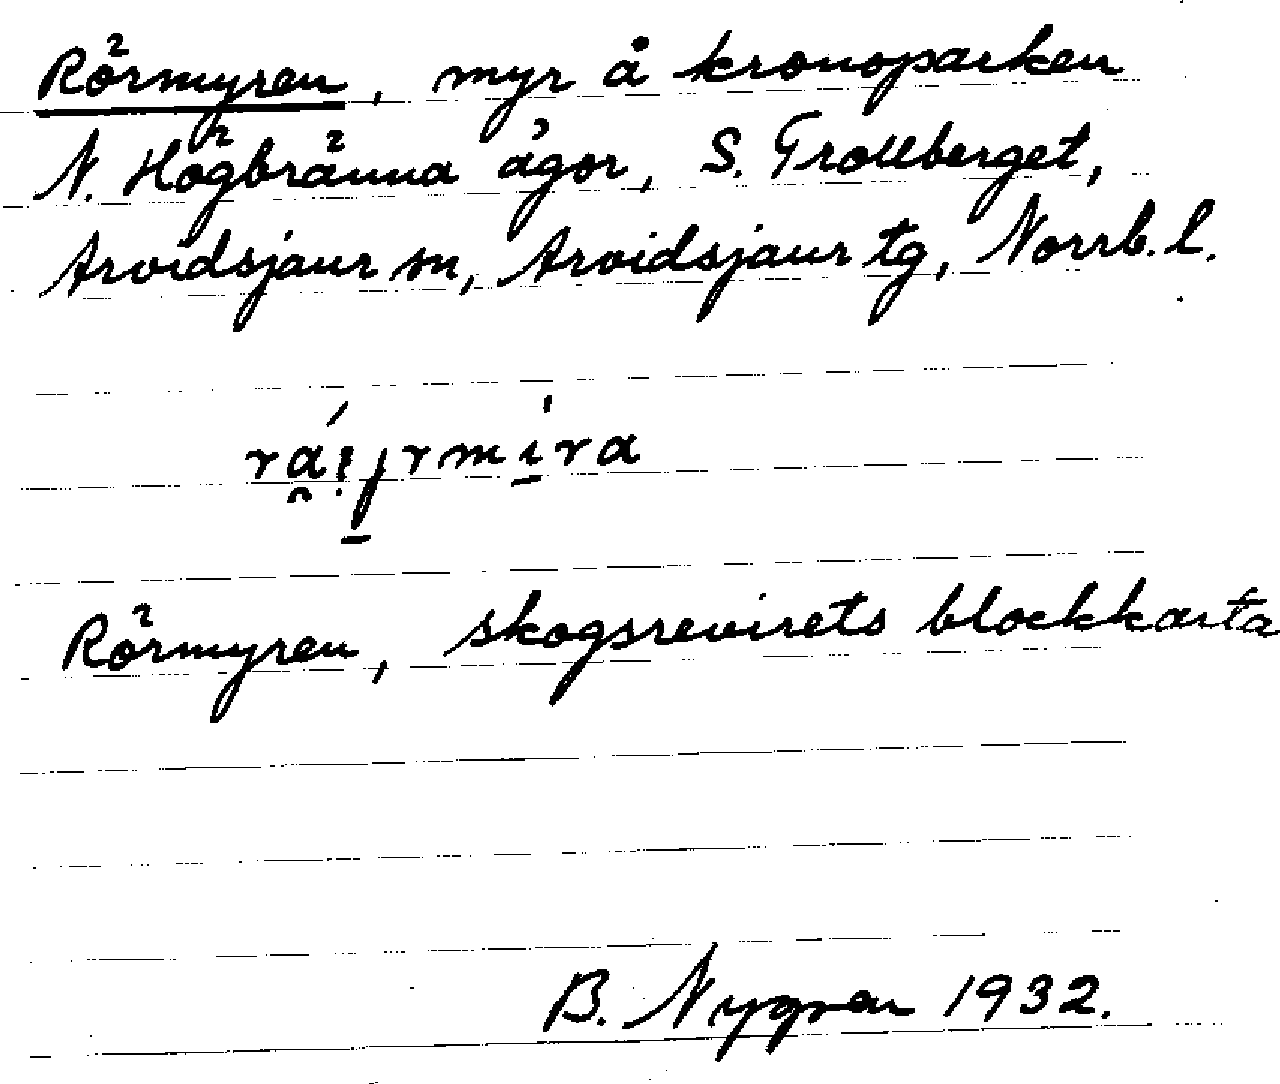 Rörmyren, myr å kronoparken
N. Högbränna ägor, S. Trollberget,
Arvidsjaur sn, Arvidsjaur tg, Norrb. l.
Rörmyren, skogsrevirets blockkarta
B. Nygren 1932.